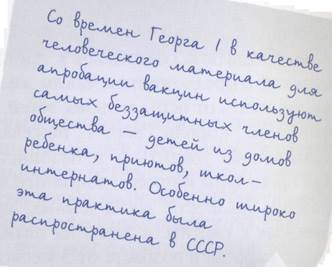 Со времен Георга I в качестве
человеческого материала для
апробации вакцин используют
самых беззащитных членов
общества — детей из домов
ребенка, приютов, школ-
интернатов. Особенно широко
эта практика была
распространена в СССР.